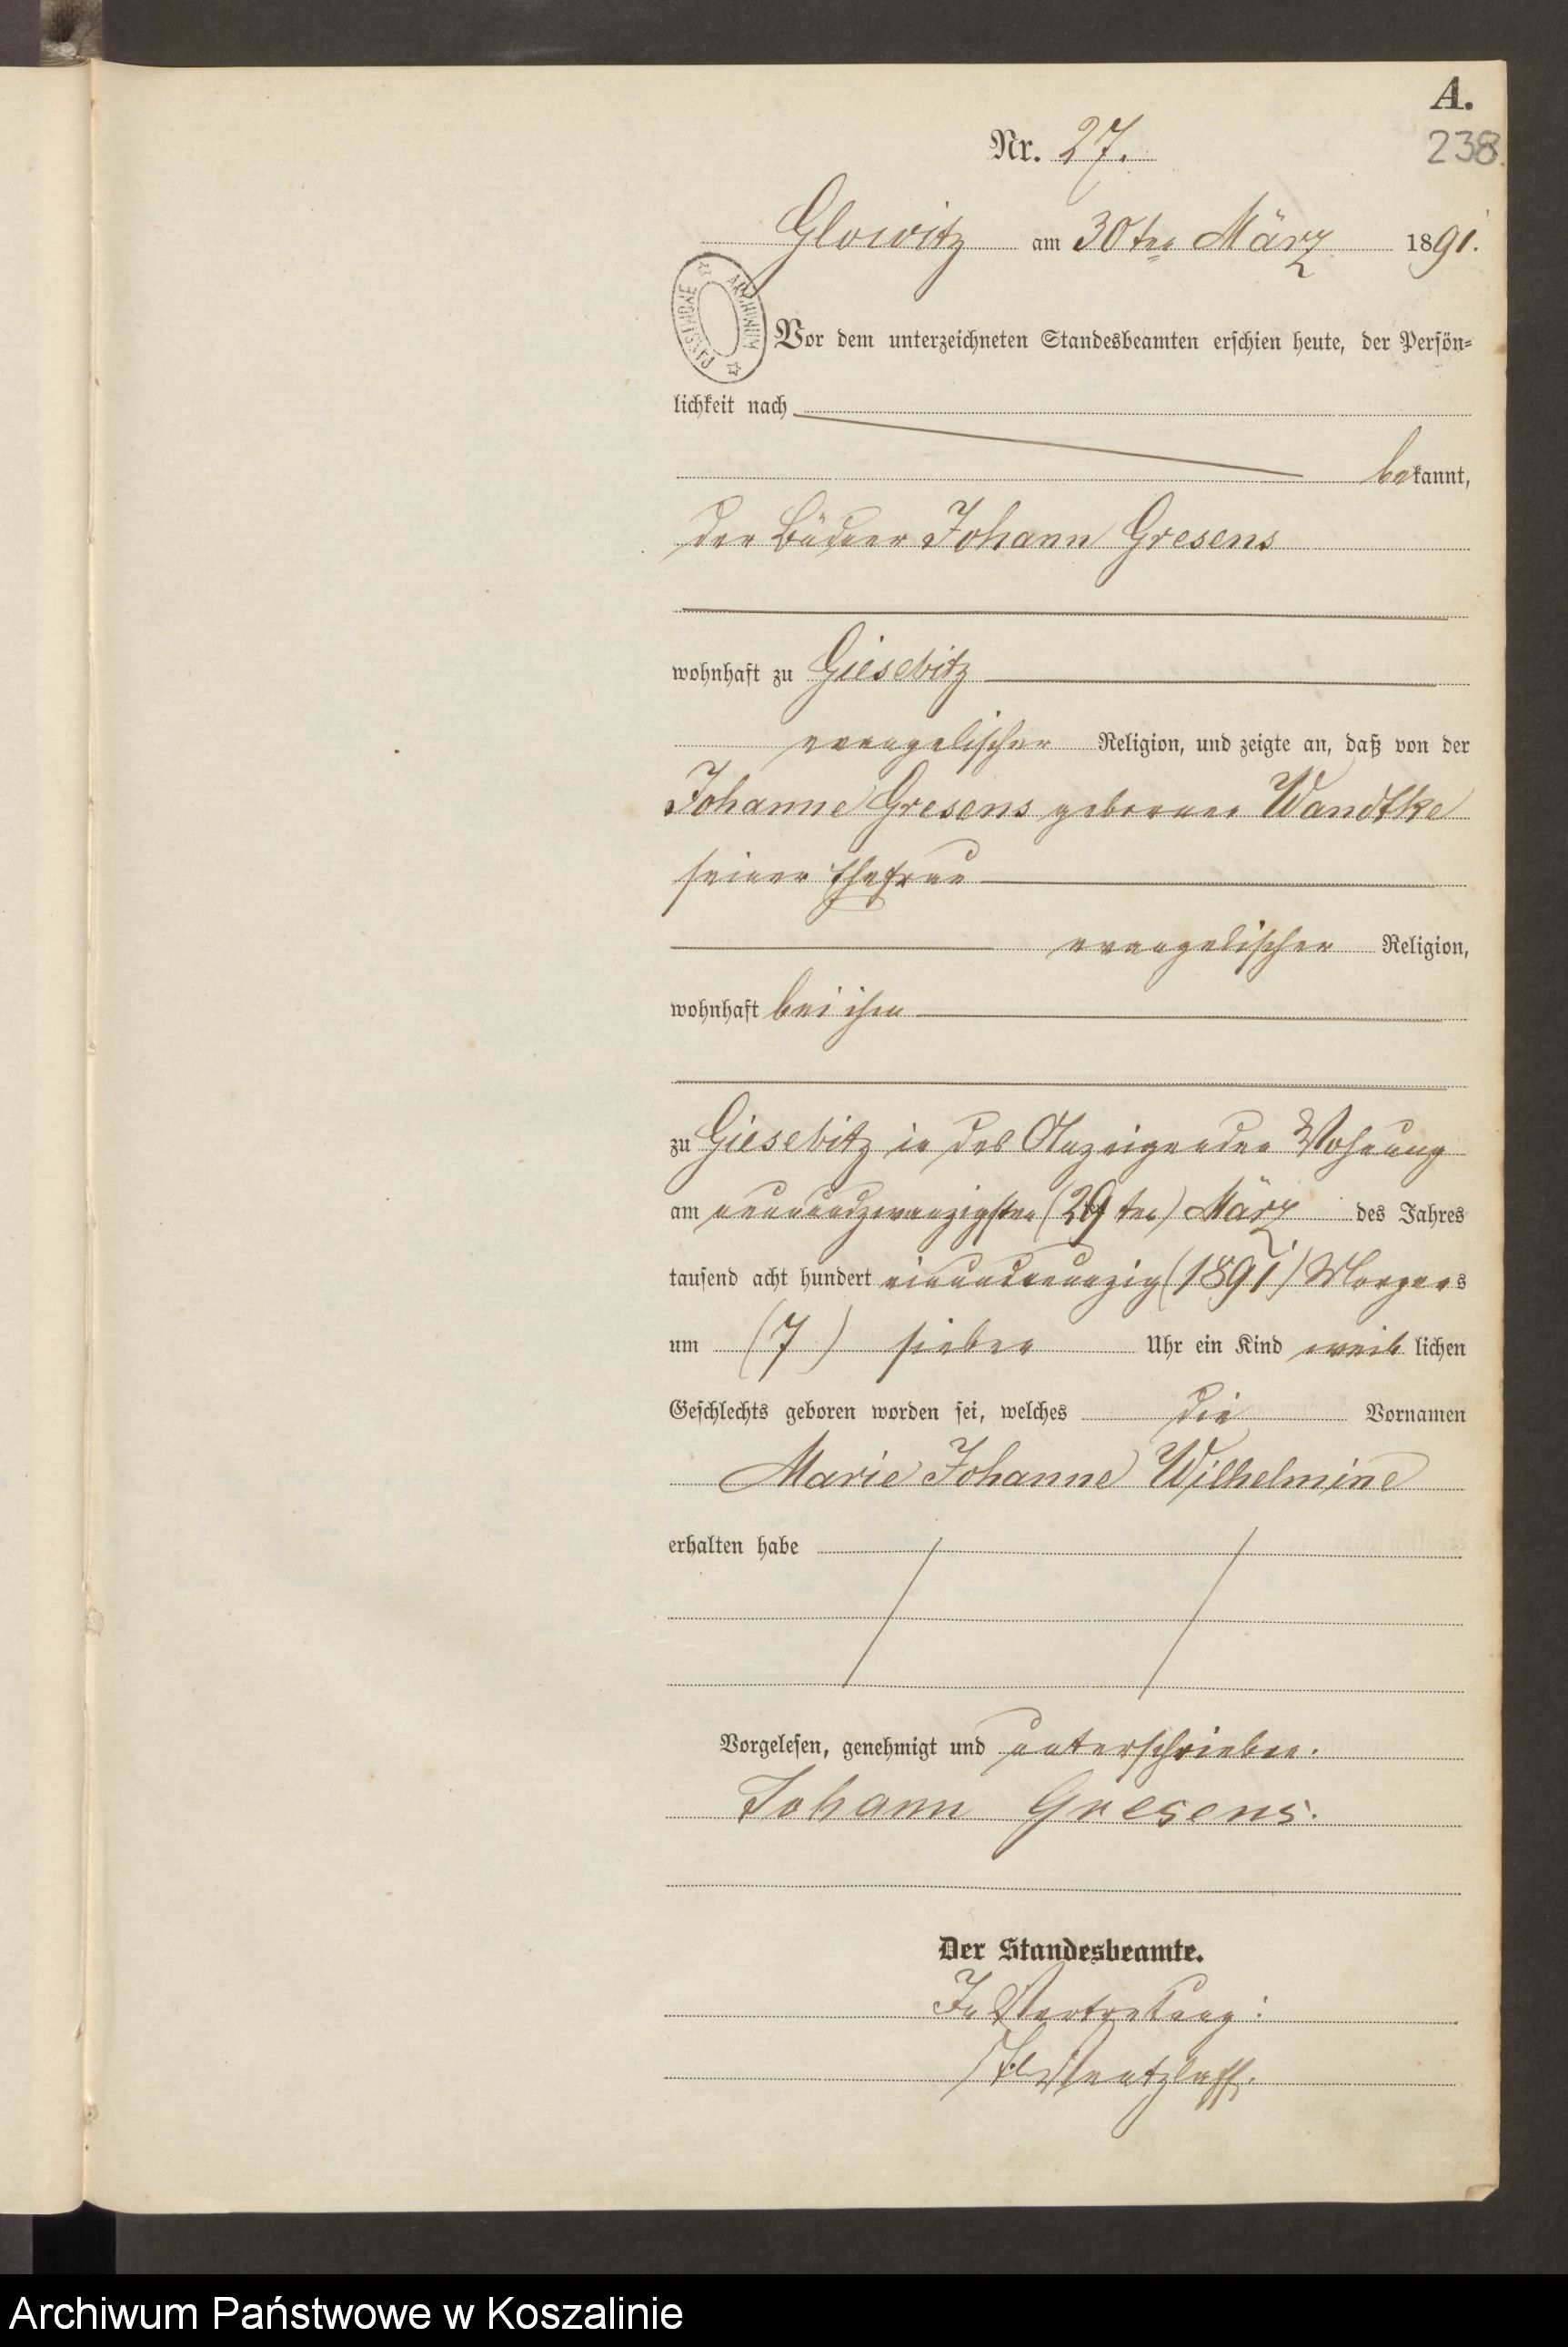 A.
Nr. 27.
238.
Glowitz am 30ten März 1891.
ARCHIWUM PAŃSTWOWE
Vor dem unterzeichneten Standesbeamten erschien heute, der Persön-
lichkeit nach
bekannt,
der Büdner Johann Gresens
wohnhaft zu Giesebitz
evangelischer Religion, und zeigte an, daß von der
Johanne Gresens geborenen Wandtke
seiner Ehefrau
evangelischer Religion,
wohnhaft bei ihm
zu Giesebitz in des Anzeigenden Wohnung
am neunundzwanzigsten (29ten) März des Jahres
tausend acht hundert einundneunzig (1891) Morgens
um (7) sieben Uhr ein Kind weiblichen
Geschlechts geboren worden sei, welches die Vornamen
Marie Johanne Wilhelmine
erhalten habe
Vorgelesen, genehmigt und unterschrieben.
Johann Gresens.
Der Standesbeamte.
In Vertretung:
Ventzlaff.
Archiwum Państwowe w Koszalinie